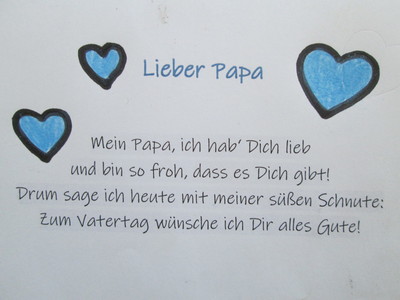 Lieber Papa
Mein Papa, ich hab' Dich lieb
und bin so froh, dass es Dich gibt!
Drum sage ich heute mit meiner süßen Schnute:
Zum Vatertag wünsche ich Dir alles Gute!